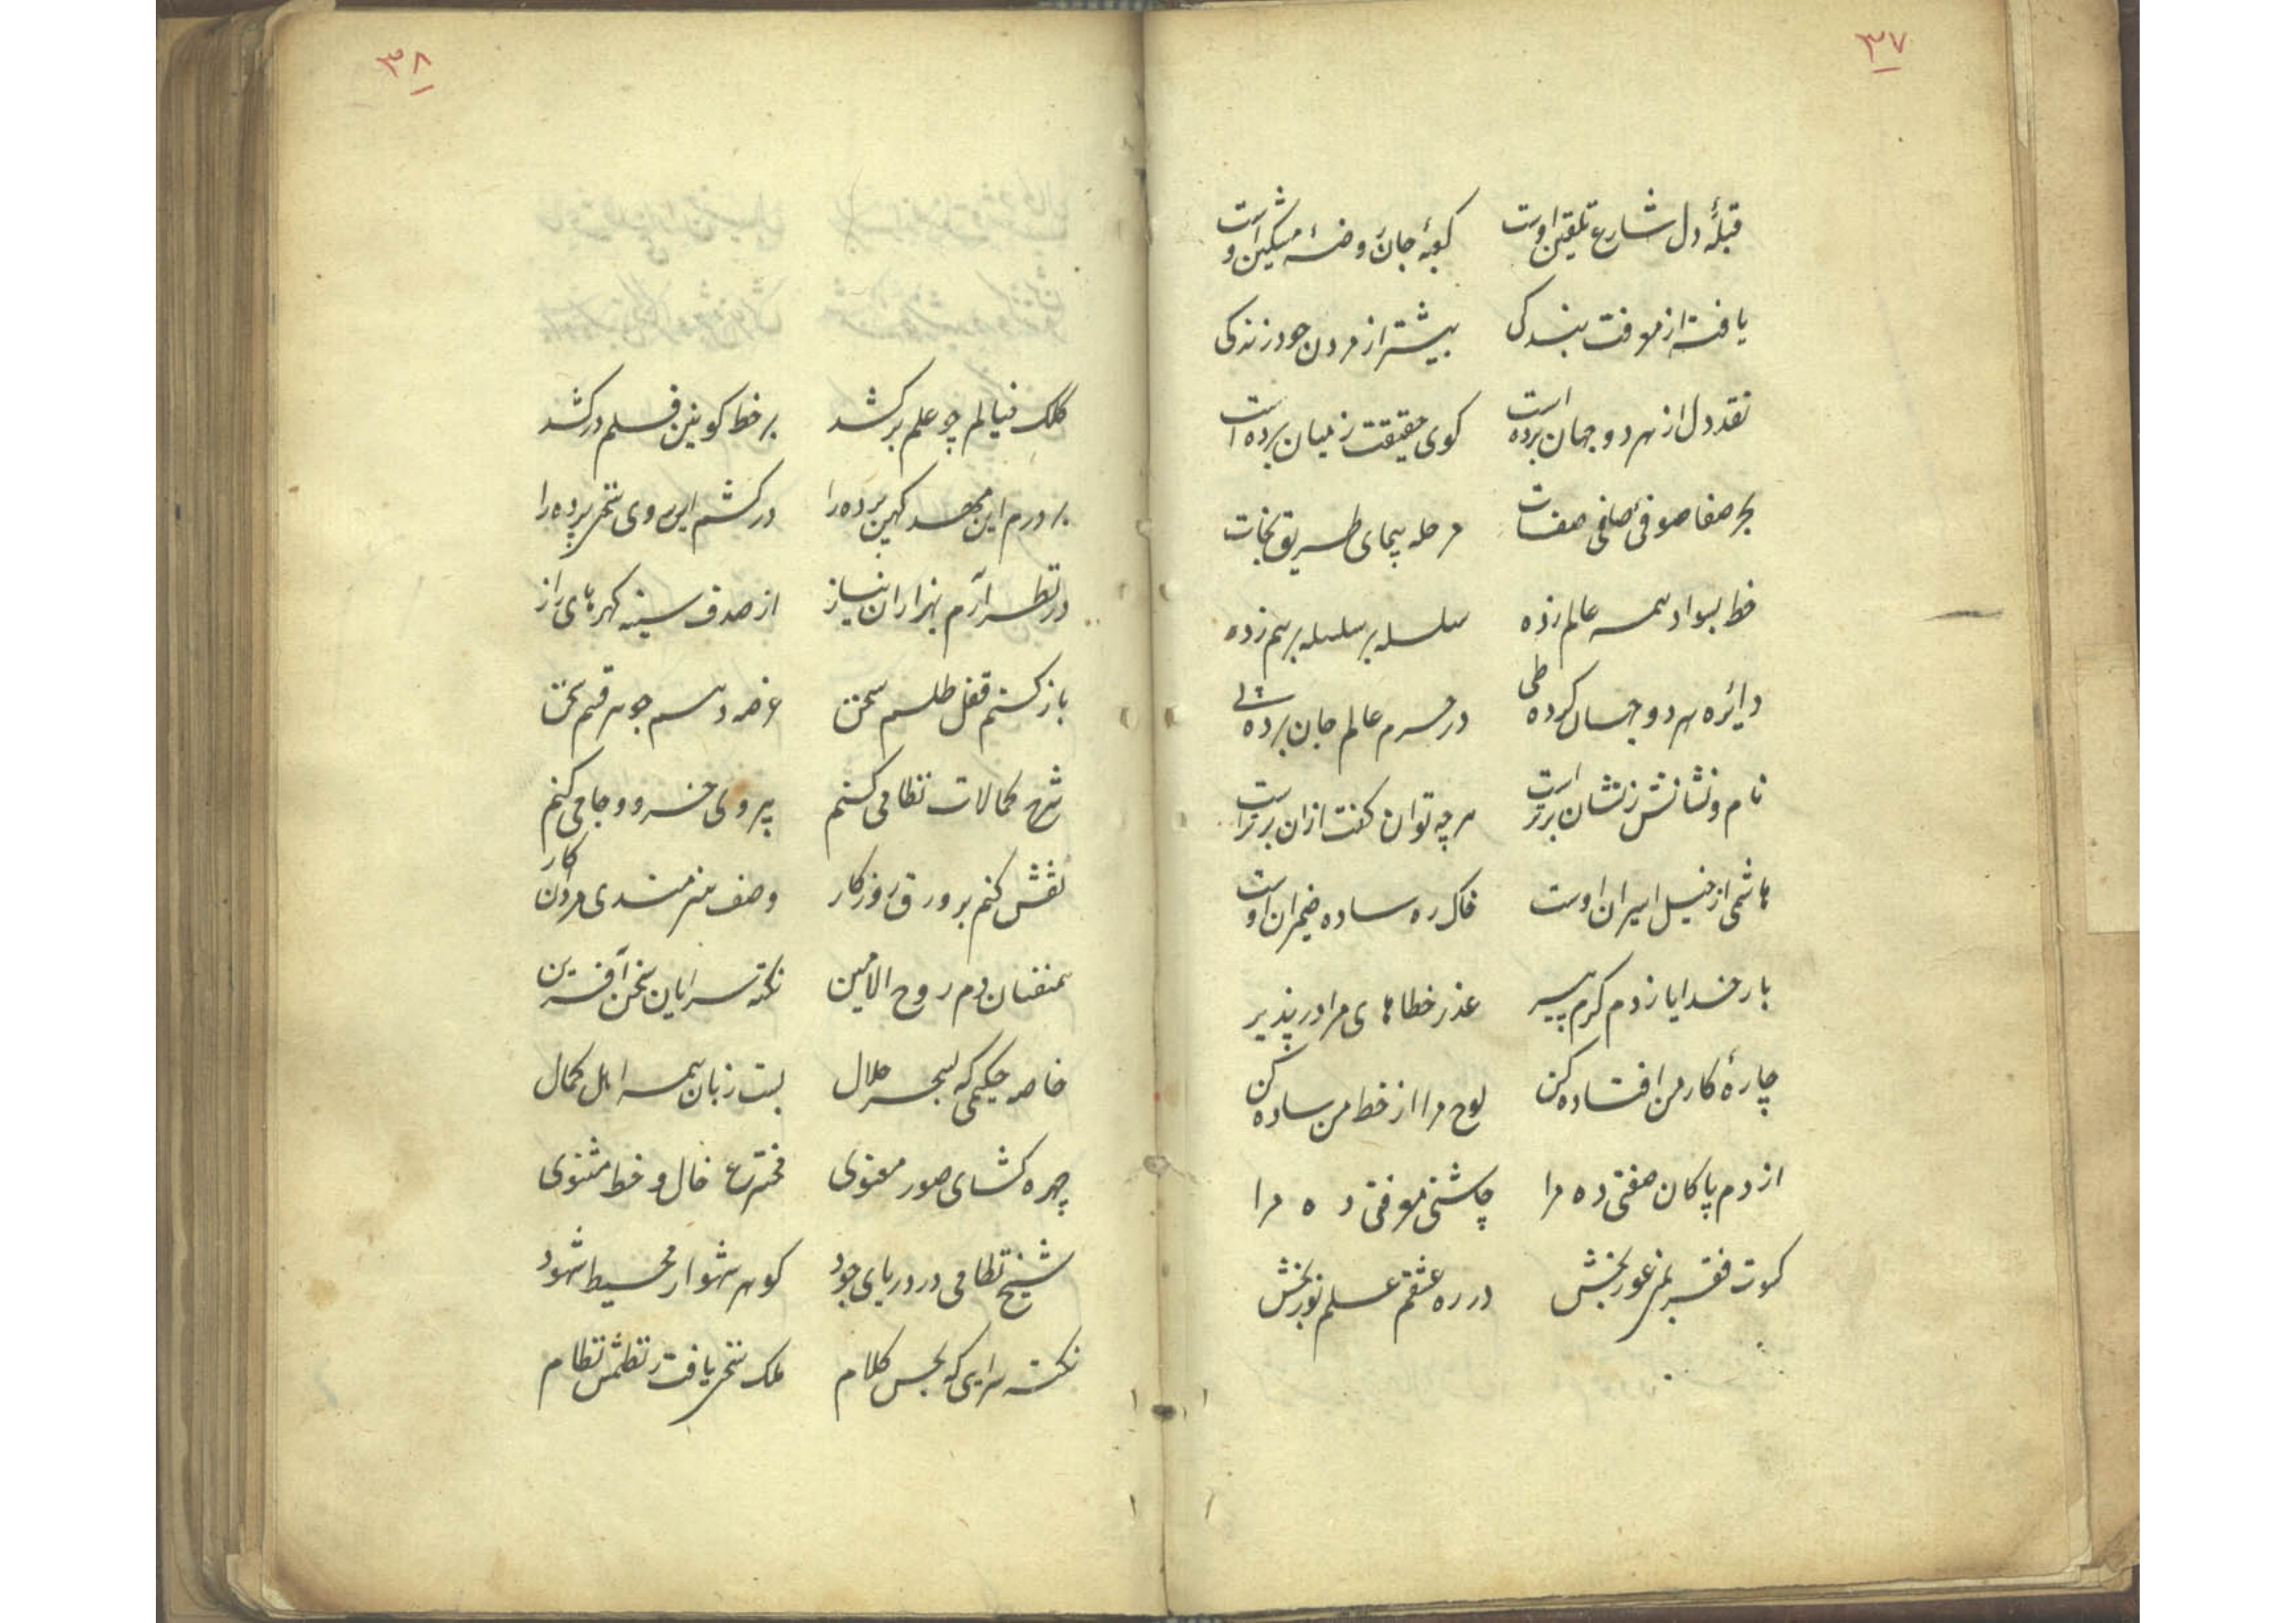 ۳۷
قبلهٔ دل شارع تلقین اوست کعبهٔ جان روضهٔ مشکین اوست
یافته از معرفت بندگی بیشتر از مردن خود زندگی
نقد دل از هر دو جهان برده است کوی حقیقت ز میان برده است
بحر صفا صوفی صافی صفات مرحله پیمای طریق نجات
خط بسواد همه عالم زده سلسله بر سلسله برهم زده
دایره هر دو جهان کرده طی در حرم عالم جان برده پی
نام و نشانش ز نشان برتر است هر چه توان گفت ازان برتر است
هاشمی از خیل اسیران اوست خاک ره ساده ضمیران اوست
بار خدایا ز دم گرم پیر عذر خطاهای مرا در پذیر
چارهٔ کار من افتاده کن لوح مرا از خط من ساده کن
از دم پاکان صفتی ده مرا چاشنی معرفتی ده مرا
کسوت فقر بخش در ره عشقم علم نور بخش
۳۸
کلک خیالم چو علم برکشد بر خط کونین قلم درکشد
بر درم این مهد کهن برده را درکشم این روی سخن پرده را
در نظر آرم بهزاران نیاز از صدف سینه گهرهای راز
باز کنم قفل طلسم سخن عرضه دهم جوهر قسم سخن
شرح کمالات نظامی کنم پیروی خسرو و جامی کنم
نقش کنم بر ورق روزکار وصف هنرمندی مردان کار
همنفسان دم روح الامین نکته سرایان سخن آفرین
خاصه حکیمی که بسحر حلال بست زبان همه اهل کمال
چهره کشای صور معنوی مخترع خال و خط مثنوی
شیخ نظامی در دریای جود کوهر شهوار محیط شهود
نکته سرایی که بحسن کلام ملک سخن یافت ز نظمش نظام